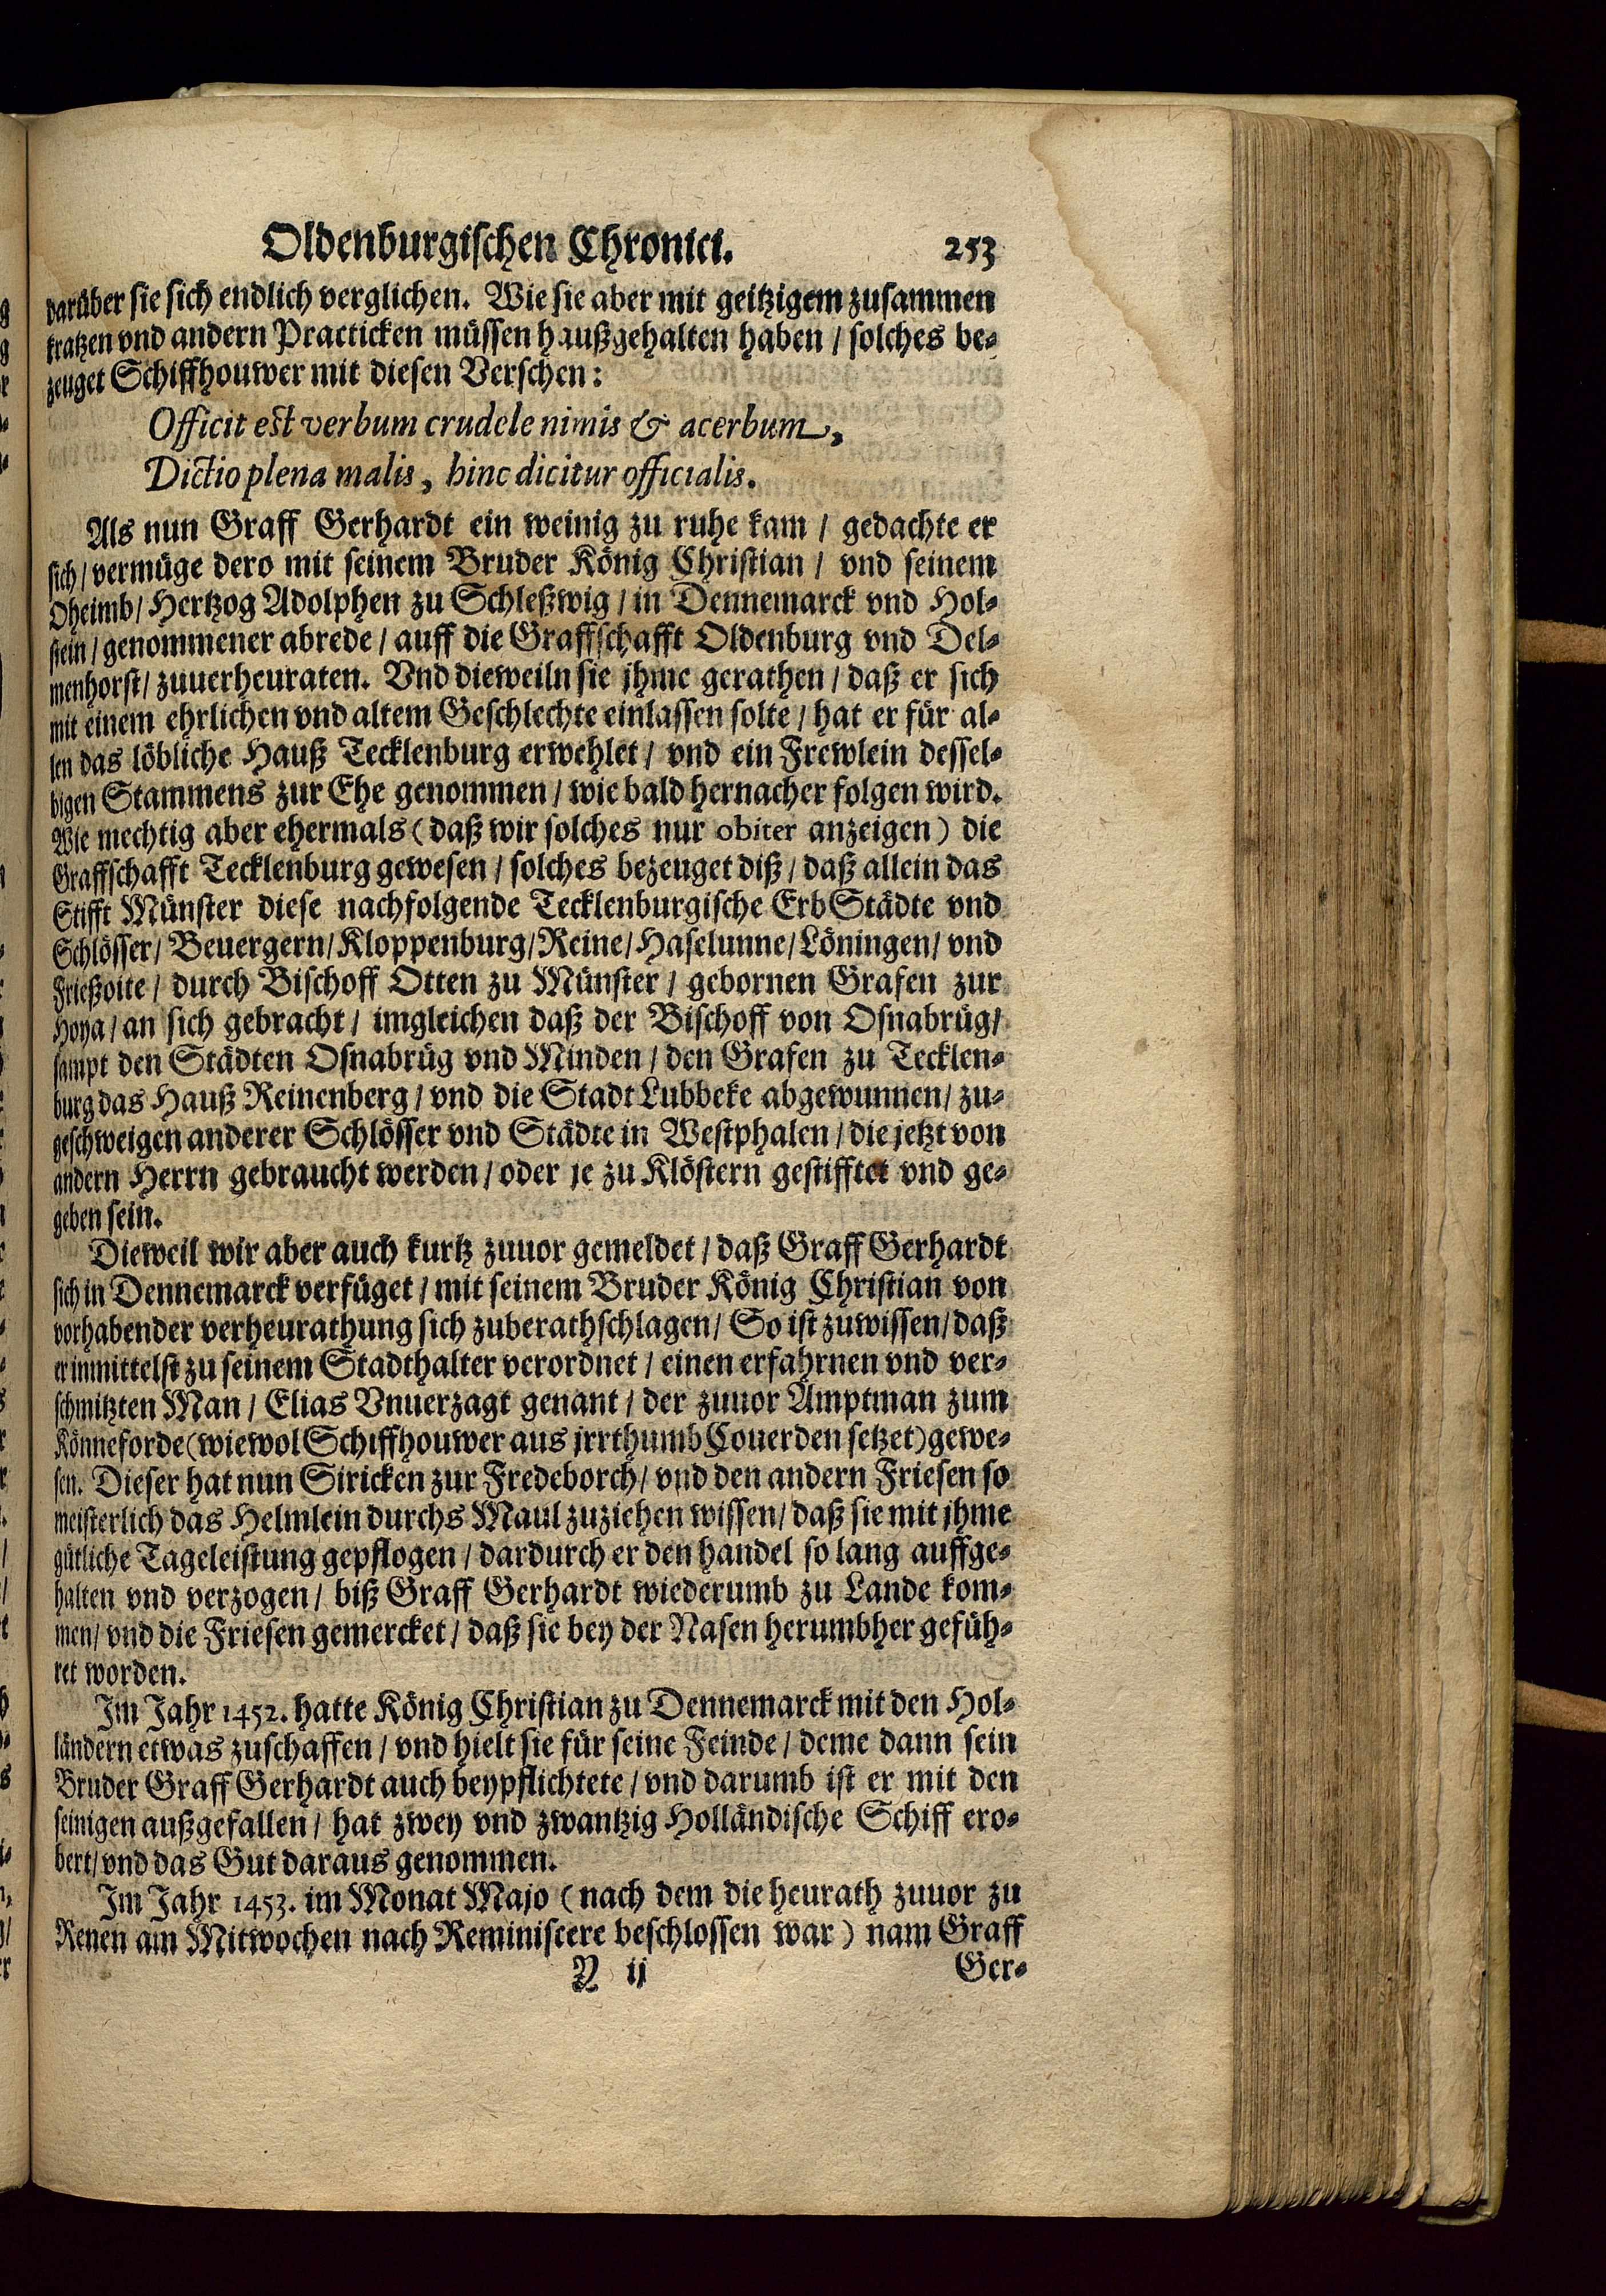 Oldenburgischen Chronici. 253
darüber sie sich endlich verglichen. Wie sie aber mit geitzigem zusammen
kratzen vnd andern Practicken müssen haußgehalten haben / solches be-
zeuget Schiffhouwer mit diesen Verschen:
Officit est verbum crudele nimis & acerbum,
Dictio plena malis, hinc dicitur officialis.
Als nun Graff Gerhardt ein weinig zu ruhe kam / gedachte er
sich / vermüge dero mit seinem Bruder König Christian / vnd seinem
Oheimb / Hertzog Adolphen zu Schleßwig / in Dennemarck vnd Hol-
stein / genommener abrede / auff die Graffschafft Oldenburg vnd Del-
menhorst / zuuerheuraten. Vnd dieweiln sie jhme gerathen / daß er sich
mit einem ehrlichen vnd altem Geschlechte einlassen solte / hat er für al-
len das löbliche Hauß Tecklenburg erwehlet / vnd ein Frewlein dessel-
bigen Stammens zur Ehe genommen / wie bald hernacher folgen wird.
Wie mechtig aber ehermals (daß wir solches nur obiter anzeigen) die
Graffschafft Tecklenburg gewesen / solches bezeuget diß / daß allein das
Stifft Münster diese nachfolgende Tecklenburgische ErbStädte vnd
Schlösser / Beuergern / Kloppenburg / Reine / Haselunne / Löningen / vnd
Frießoite / durch Bischoff Otten zu Münster / gebornen Grafen zur
Hoya / an sich gebracht / imgleichen daß der Bischoff von Osnabrüg /
sampt den Städten Osnabrüg vnd Minden / den Grafen zu Tecklen-
burg das Hauß Reinenberg / vnd die Stadt Lubbeke abgewunnen / zu-
geschweigen anderer Schlösser vnd Städte in Westphalen / die jetzt von
andern Herrn gebraucht werden / oder je zu Klöstern gestifftet vnd ge-
geben sein.
Dieweil wir aber auch kurtz zuuor gemeldet / daß Graff Gerhardt
sich in Dennemarck verfüget / mit seinem Bruder König Christian von
vorhabender verheurathung sich zuberathschlagen / So ist zuwissen / daß
er inmittelst zu seinem Stadthalter verordnet / einen erfahrnen vnd ver-
schmitzten Man / Elias Vnuerzagt genant / der zuuor Amptman zum
Könneforde (wiewol Schiffhouwer aus jrrthumb Couerden setzet) gewe-
sen. Dieser hat nun Siricken zur Fredeborch / vnd den andern Friesen so
meisterlich das Helmlein durchs Maul zuziehen wissen / daß sie mit jhme
gütliche Tageleistung gepflogen / dardurch er den handel so lang auffge-
halten vnd verzogen / biß Graff Gerhardt wiederumb zu Lande kom-
men / vnd die Friesen gemercket / daß sie bey der Nasen herumbher gefüh-
ret worden.
Im Jahr 1452. hatte König Christian zu Dennemarck mit den Hol-
ländern etwas zuschaffen / vnd hielt sie für seine Feinde / deme dann sein
Bruder Graff Gerhardt auch beypflichtete / vnd darumb ist er mit den
seinigen außgefallen / hat zwey vnd zwantzig Holländische Schiff ero-
bert / vnd das Gut daraus genommen.
Im Jahr 1453. im Monat Majo (nach dem die heurath zuuor zu
Renen am Mitwochen nach Reminiscere beschlossen war) nam Graff
N ij Ger-